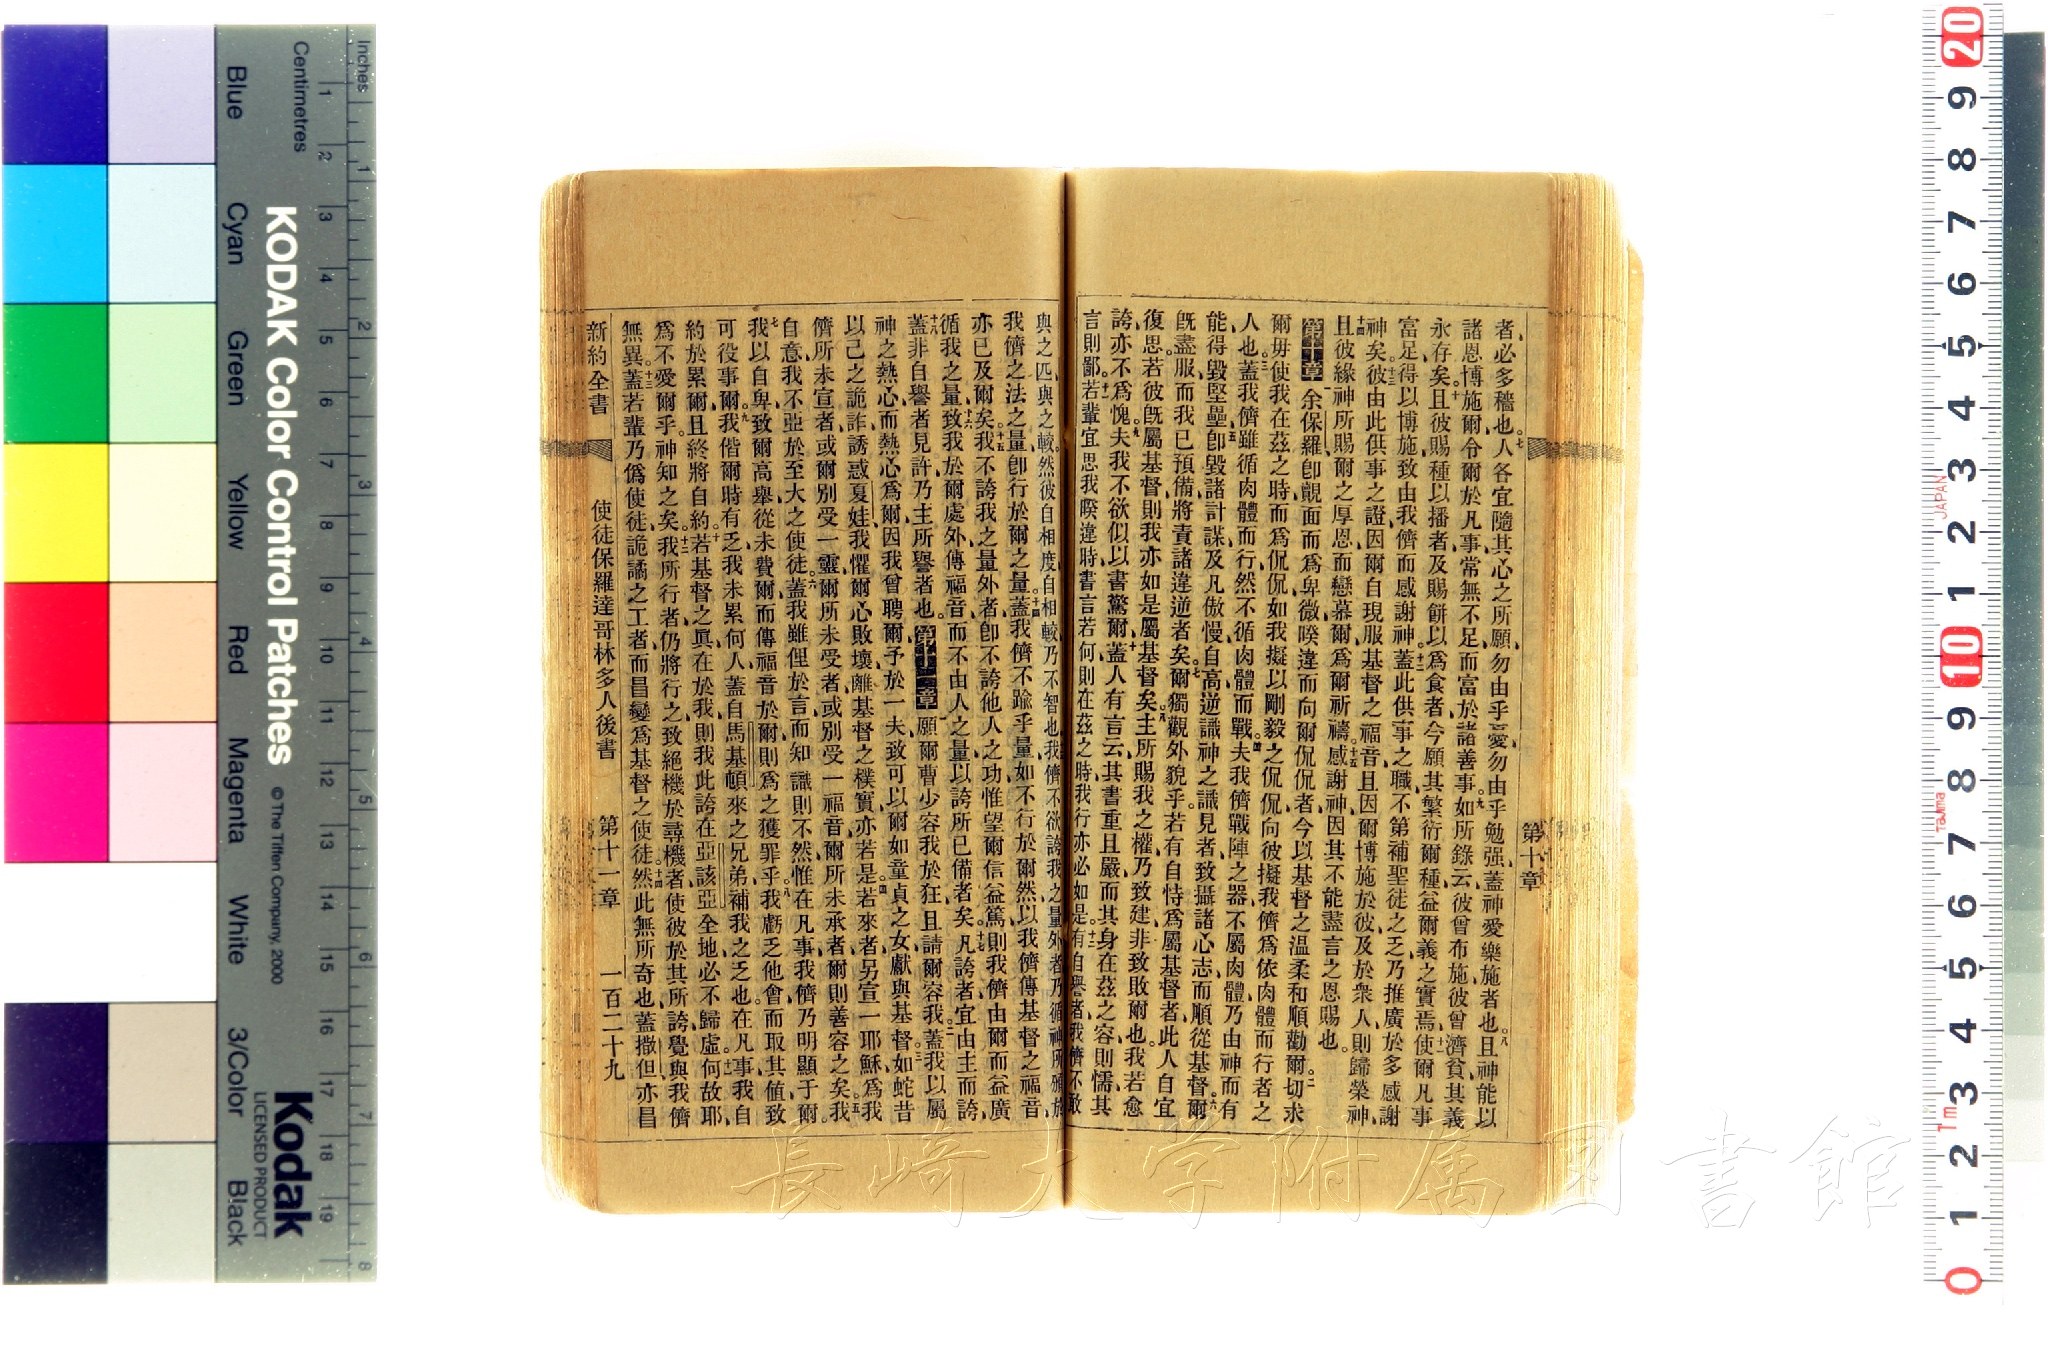 者必多穡也七人各宜隨其心之所願勿由乎憂勿由乎勉强蓋神愛樂施者也八且神能以
諸恩博施爾令爾於凡事常無不足而富於諸善事九如所錄云彼曾布施彼曾濟貧其義
永存矣十且彼賜種以播者及賜餅以爲食者今願其繁衍爾種益爾義之實焉十一使爾凡事
富足得以博施致由我儕而感謝神十二蓋此供事之職不第補聖徒之乏乃推廣於多感謝
神矣十三彼由此供事之證因爾自現服基督之福音且因爾博施於彼及於衆人則歸榮神
十四且彼緣神所賜爾之厚恩而戀慕爾爲爾祈禱十五感謝神因其不能盡言之恩賜也
第十章 余保羅卽覿面而爲卑微暌違而向爾侃侃者今以基督之温柔和順勸爾二切求
爾毋使我在茲之時而爲侃侃如我擬以剛毅之侃侃向彼擬我儕爲依肉體而行者之
人也三蓋我儕雖循肉體而行然不循肉體而戰四夫我儕戰陣之器不屬肉體乃由神而有
能得毀堅壘五卽毀諸計謀及凡傲慢自高逆識神之識見者致攝諸心志而順從基督六爾
旣盡服而我已預備將責諸違逆者矣七爾獨觀外貌乎若有自恃爲屬基督者此人自宜
復思若彼旣屬基督則我亦如是屬基督矣八主所賜我之權乃致建非致敗爾也我若愈
誇亦不爲愧九夫我不欲似以書驚爾十蓋人有言云其書重且嚴而其身在茲之容則懦其
言則鄙十一若輩宜思我暌違時書言若何則在茲之時我行亦必如是十二有自譽者我儕不敢
第十章
與之匹與之較然彼自相度自相較乃不智也十三我儕不欲誇我之量外者乃循神所頒於
我儕之法之量卽行於爾之量十四蓋我儕不踰乎量如不行於爾然以我儕傳基督之福音
亦已及爾矣十五我不誇我之量外者卽不誇他人之功惟望爾信益篤則我儕由爾而益廣
循我之量十六致我於爾處外傳福音而不由人之量以誇所已備者矣十七凡誇者宜由主而誇
十八蓋非自譽者見許乃主所譽者也 第十一章 願爾曹少容我於狂且請爾容我二蓋我以屬
神之熱心而熱心爲爾因我曾聘爾予於一夫致可以爾如童貞之女獻與基督三如蛇昔
以己之詭詐誘惑夏娃我懼爾心敗壞離基督之樸實亦若是四若來者另宣一耶穌爲我
儕所未宣者或爾別受一靈爾所未受者或別受一福音爾所未承者爾則善容之矣五我
自意我不亞於至大之使徒六蓋我雖俚於言而知識則不然惟在凡事我儕乃明顯于爾
七我以自卑致爾高舉從未費爾而傳福音於爾則爲之獲罪乎八我虧乏他會而取其値致
可役事爾九我偕爾時有乏我未累何人蓋自馬基頓來之兄弟補我之乏也在凡事我自
約於累爾且終將自約十若基督之眞在於我則我此誇在亞該亞全地必不歸虛十一何故耶
爲不愛爾乎神知之矣十二我所行者仍將行之致絕機於尋機者使彼於其所誇覺與我儕
無異十三蓋若輩乃僞使徒詭譎之工者而昌變爲基督之使徒十四然此無所奇也蓋撒但亦昌
新約全書 使徒保羅達哥林多人後書 第十一章 一百二十九
Inches
Centimetres
KODAK Color Control Patches
© The Tiffen Company, 2000
Kodak
LICENSED PRODUCT
Blue
Cyan
Green
Yellow
Red
Magenta
White
3/Color
Black
1 2 3 4 5 6 7 8 9 10 11 12 13 14 15 16 17 18 19
1 2 3 4 5 6 7 8
20 9 8 7 6 5 4 3 2 1 10 9 8 7 6 5 4 3 2 1 0
JAPAN
Tajima
Tm
長崎大学附属図書館